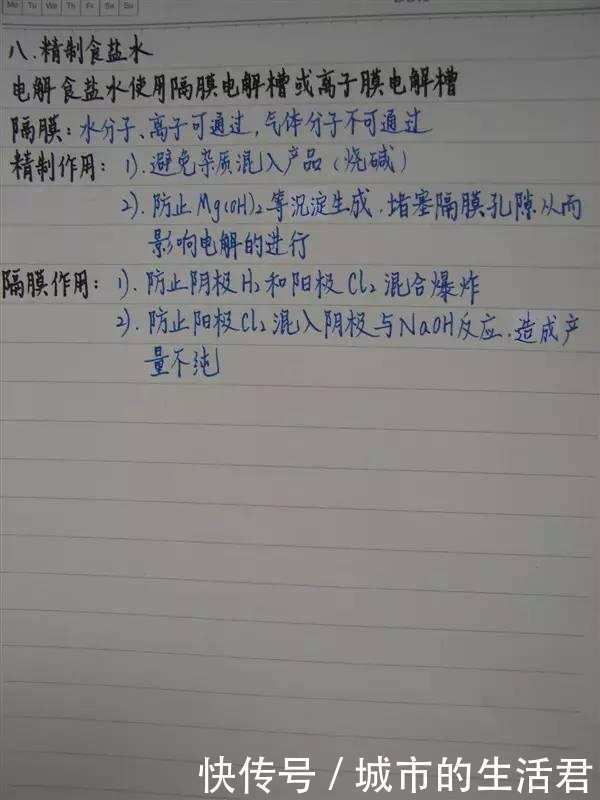 Mo Tu We Th Fr Sa Su
八.精制食盐水
电解食盐水使用隔膜电解槽或离子膜电解槽
隔膜:水分子、离子可通过,气体分子不可通过
精制作用:1).避免杂质混入产品(烧碱)
2).防止Mg(OH)₂等沉淀生成.堵塞隔膜孔隙从而
影响电解的进行
隔膜作用:1).防止阴极H₂和阳极Cl₂混合爆炸
2).防止阳极Cl₂混入阴极与NaOH反应.造成产
量不纯
快传号/城市的生活君